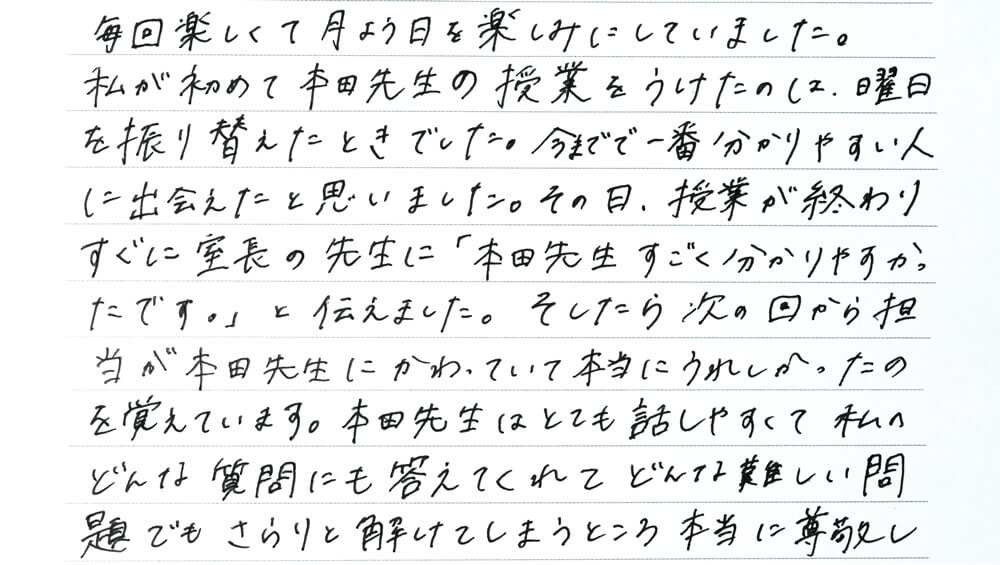 毎回楽しくて月よう日を楽しみにしていました。
私が初めて本田先生の授業をうけたのは、日曜日
を振り替えたときでした。今までで一番分かりやすい人
に出会えたと思いました。その日、授業が終わり
すぐに室長の先生に「本田先生すごく分かりやすかっ
たです。」と伝えました。そしたら次の回から担
当が本田先生にかわっていて本当にうれしかったの
を覚えています。本田先生はとても話しやすくて私の
どんな質問にも答えてくれてどんな難しい問
題でもさらりと解けてしまうところ本当に尊敬し